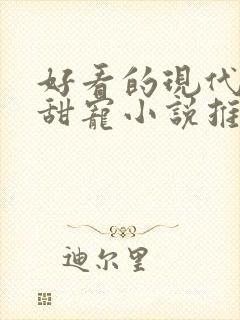 好看的現代
甜寵小說推
迪尔里